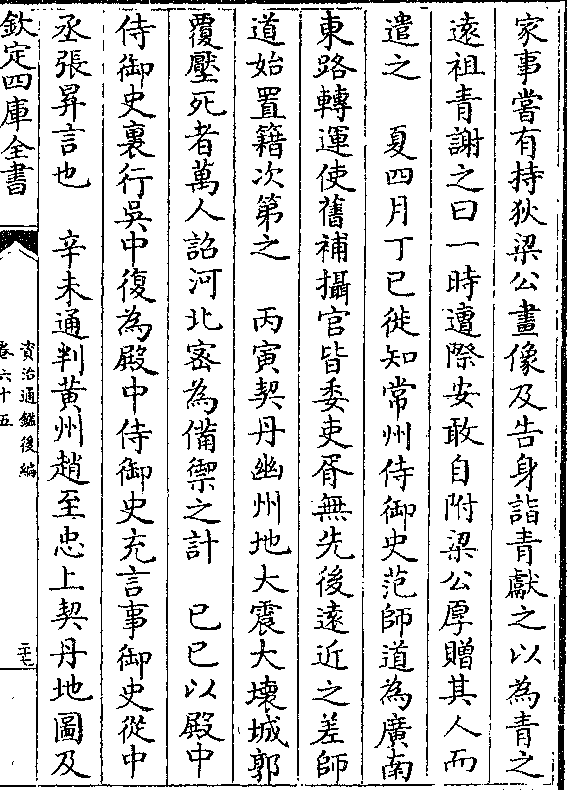 家事嘗有持狄梁公畫像及告身詣青獻之以為青之
遠祖青謝之曰一時遭際安敢自附梁公厚贈其人而
遣之　夏四月丁巳徙知常州侍御史范師道為廣南
東路轉運使舊補攝官皆委吏胥無先後遠近之差師
道始置籍次第之　丙寅契丹幽州地大震大壞城郭
覆壓死者萬人詔河北密為備禦之計　已巳以殿中
侍御史裏行吳中復為殿中侍御史充言事御史從中
丞張昇言也　辛未通判黃州趙至忠上契丹地圖及
欽定四庫全書
資治通鑑後編
卷六十五
三七